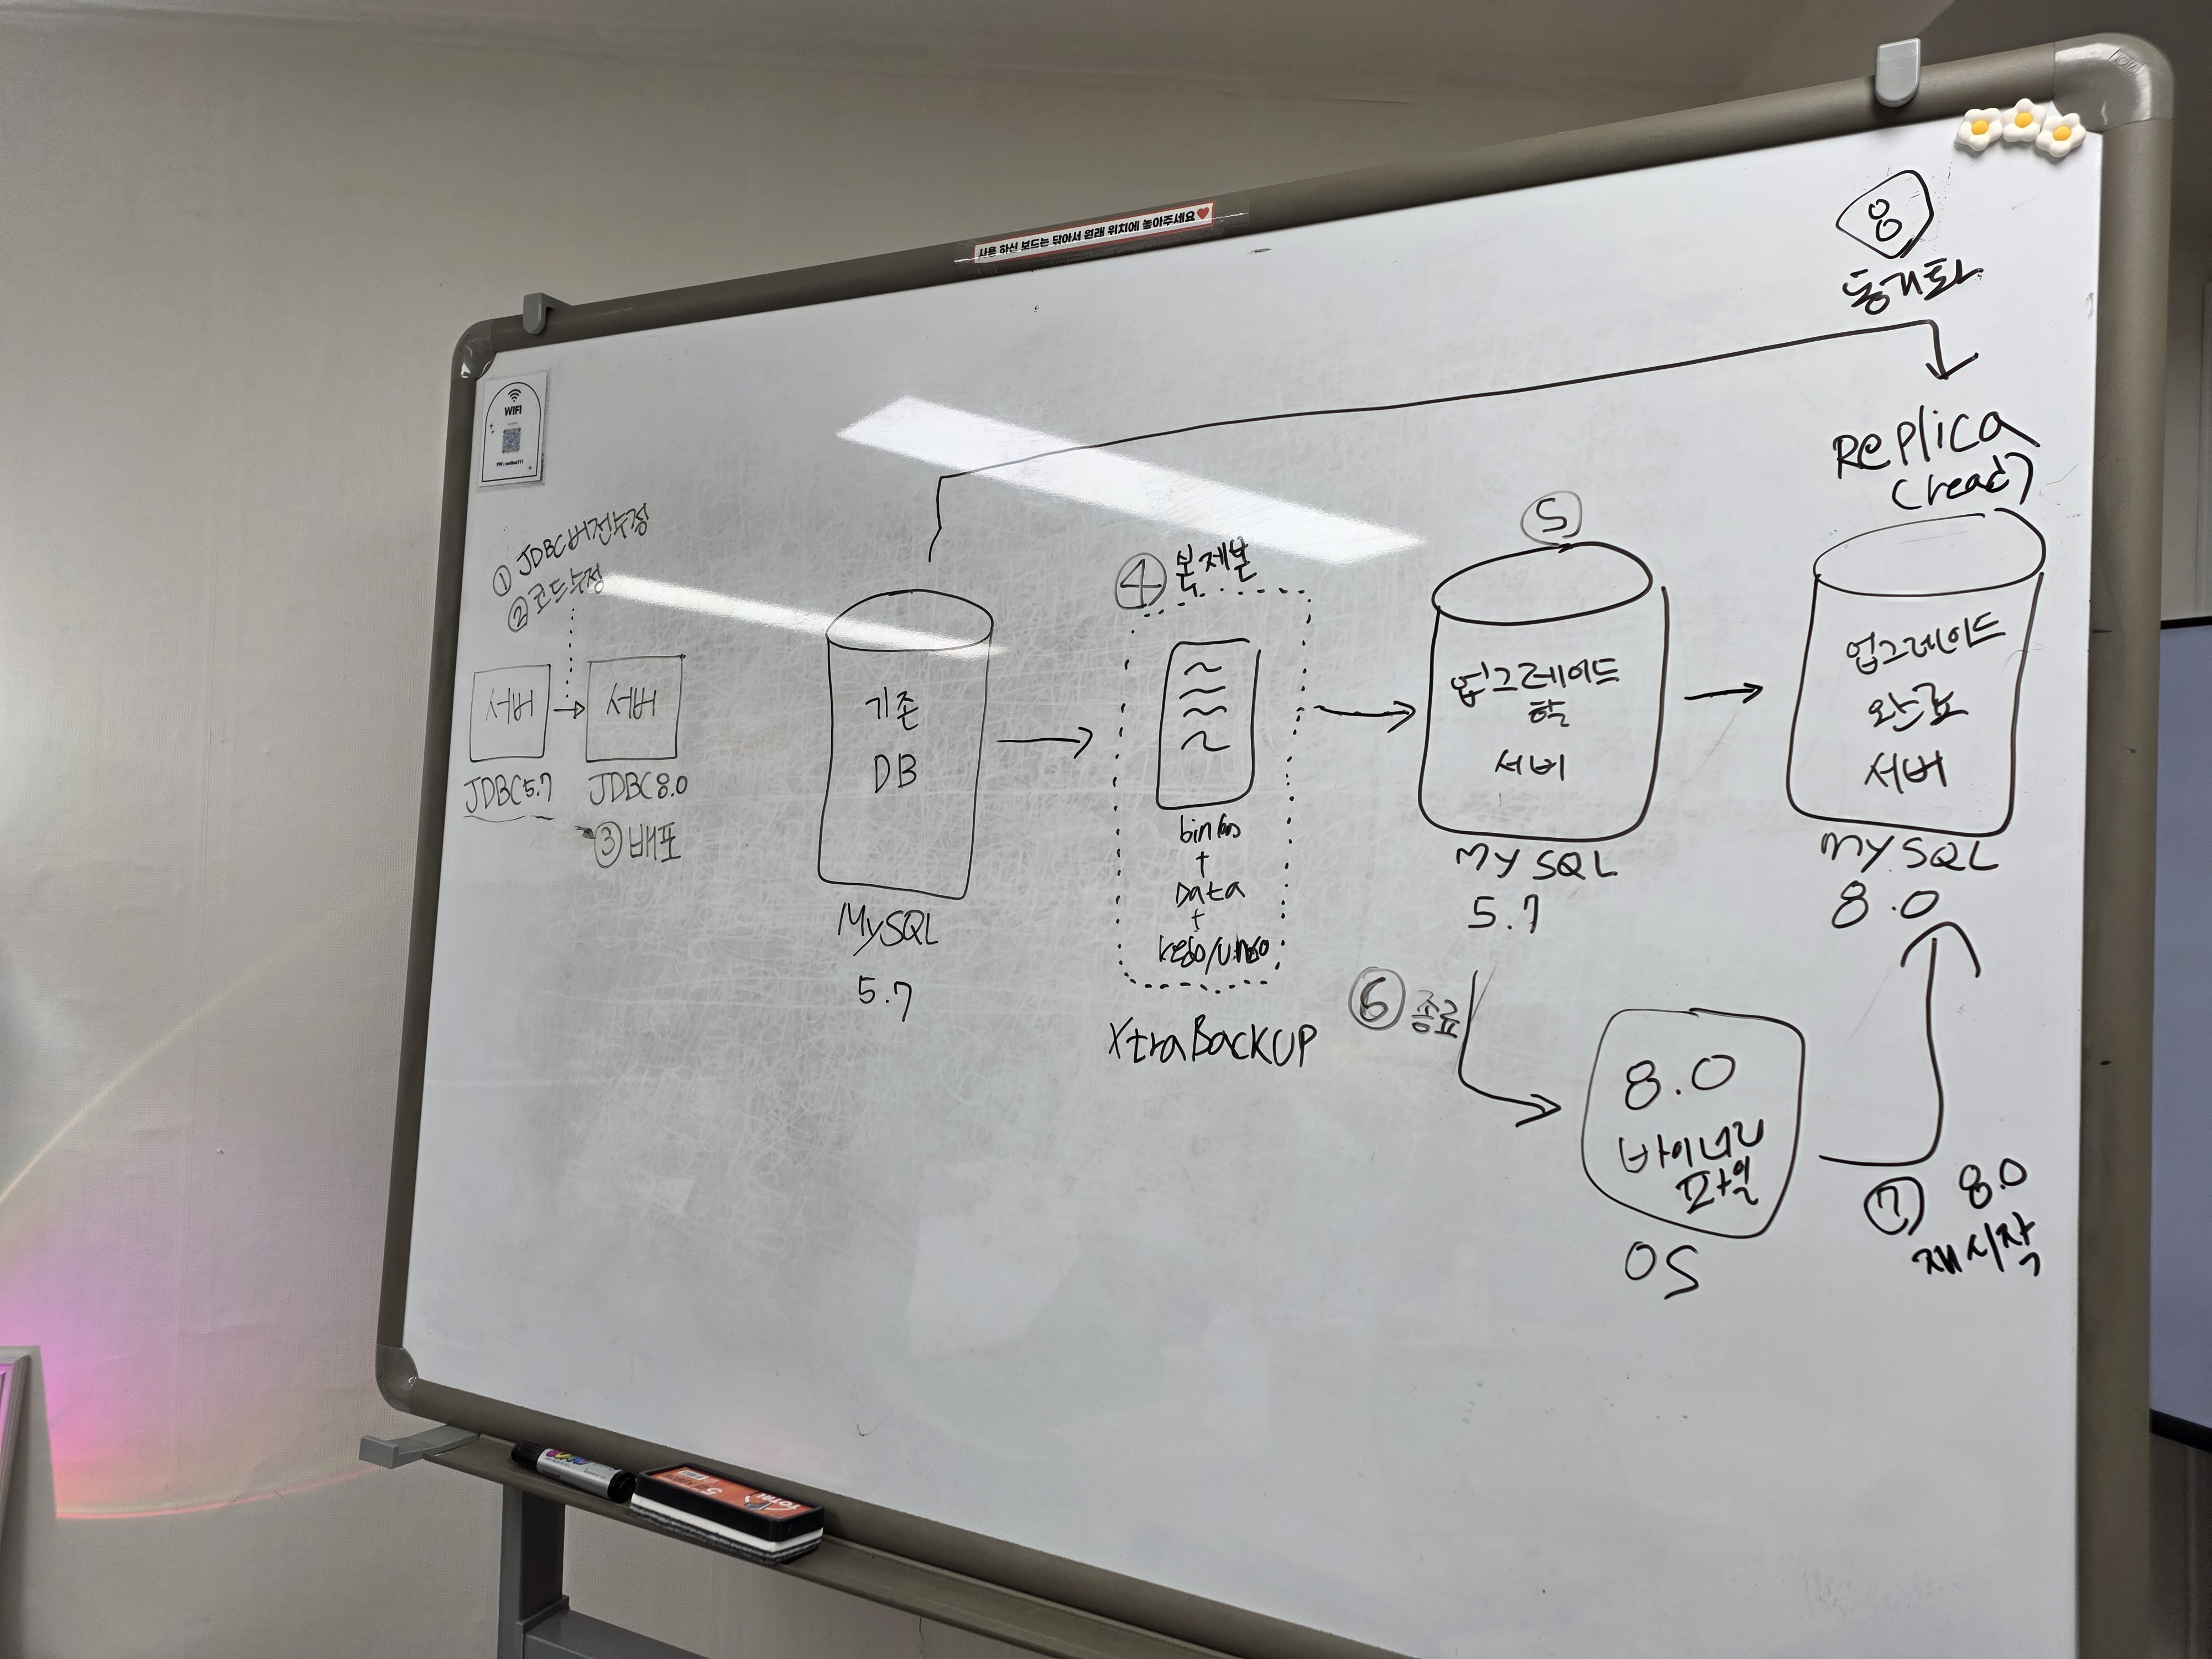 사용 하신 보드는 닦아서 원래 위치에 놓아주세요
WIFI
8
동기화
Replica
(read)
① JDBC버전수정
② 코드수정
서버
서버
JDBC5.7
JDBC8.0
③ 배포
기존
DB
MySQL
5.7
④ 복제본
binlog
+
Data
+
redo/undo
XtraBackUP
5
업그레이드
할
서버
MySQL
5.7
업그레이드
완료
서버
MySQL
8.0
⑥ 종료
8.0
바이너리
파일
OS
⑦ 8.0
재시작